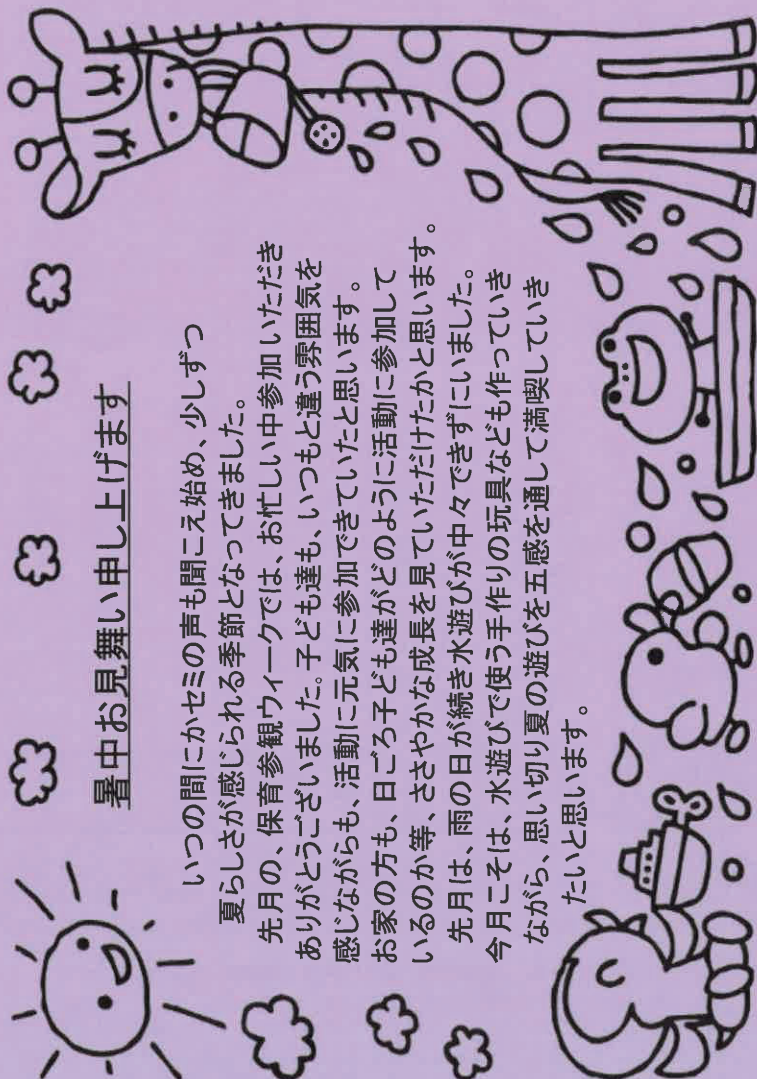 暑中お見舞い申し上げます
いつの間にかセミの声も聞こえ始め、少しずつ
夏らしさが感じられる季節となってきました。
先月の、保育参観ウィークでは、お忙しい中参加いただき
ありがとうございました。子ども達も、いつもと違う雰囲気を
感じながらも、活動に元気に参加できていたと思います。
お家の方も、日ごろ子ども達がどのように活動に参加して
いるのか等、ささやかな成長を見ていただけたかと思います。
先月は、雨の日が続き水遊びが中々できずにいました。
今月こそは、水遊びで使う手作りの玩具なども作っていき
ながら、思い切り夏の遊びを五感を通して満喫していき
たいと思います。